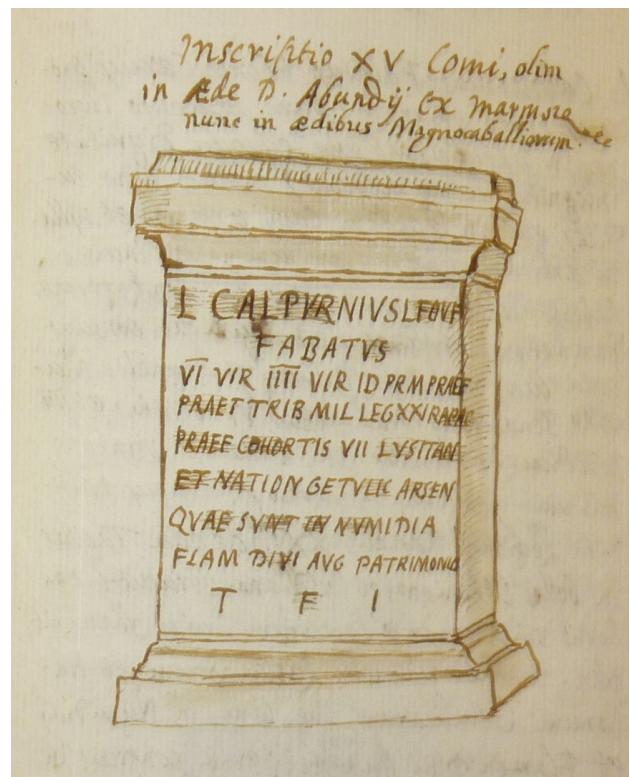 Inscriptio XV Comi, olim
in Æde D. Abundij ex marmore
nunc in ædibus Magnocaballiorum.
L CALPVRNIVS L F OVF
FABATVS
VI VIR IIII VIR ID PRM PRAEF
PRAET TRIB MIL LEG XXI RAPAC
PRAEF COHORTIS VII LVSITAN
ET NATION GETVLIC ARSEN
QVAE SVNT IN NVMIDIA
FLAM DIVI AVG PATRIMONIO
T F I